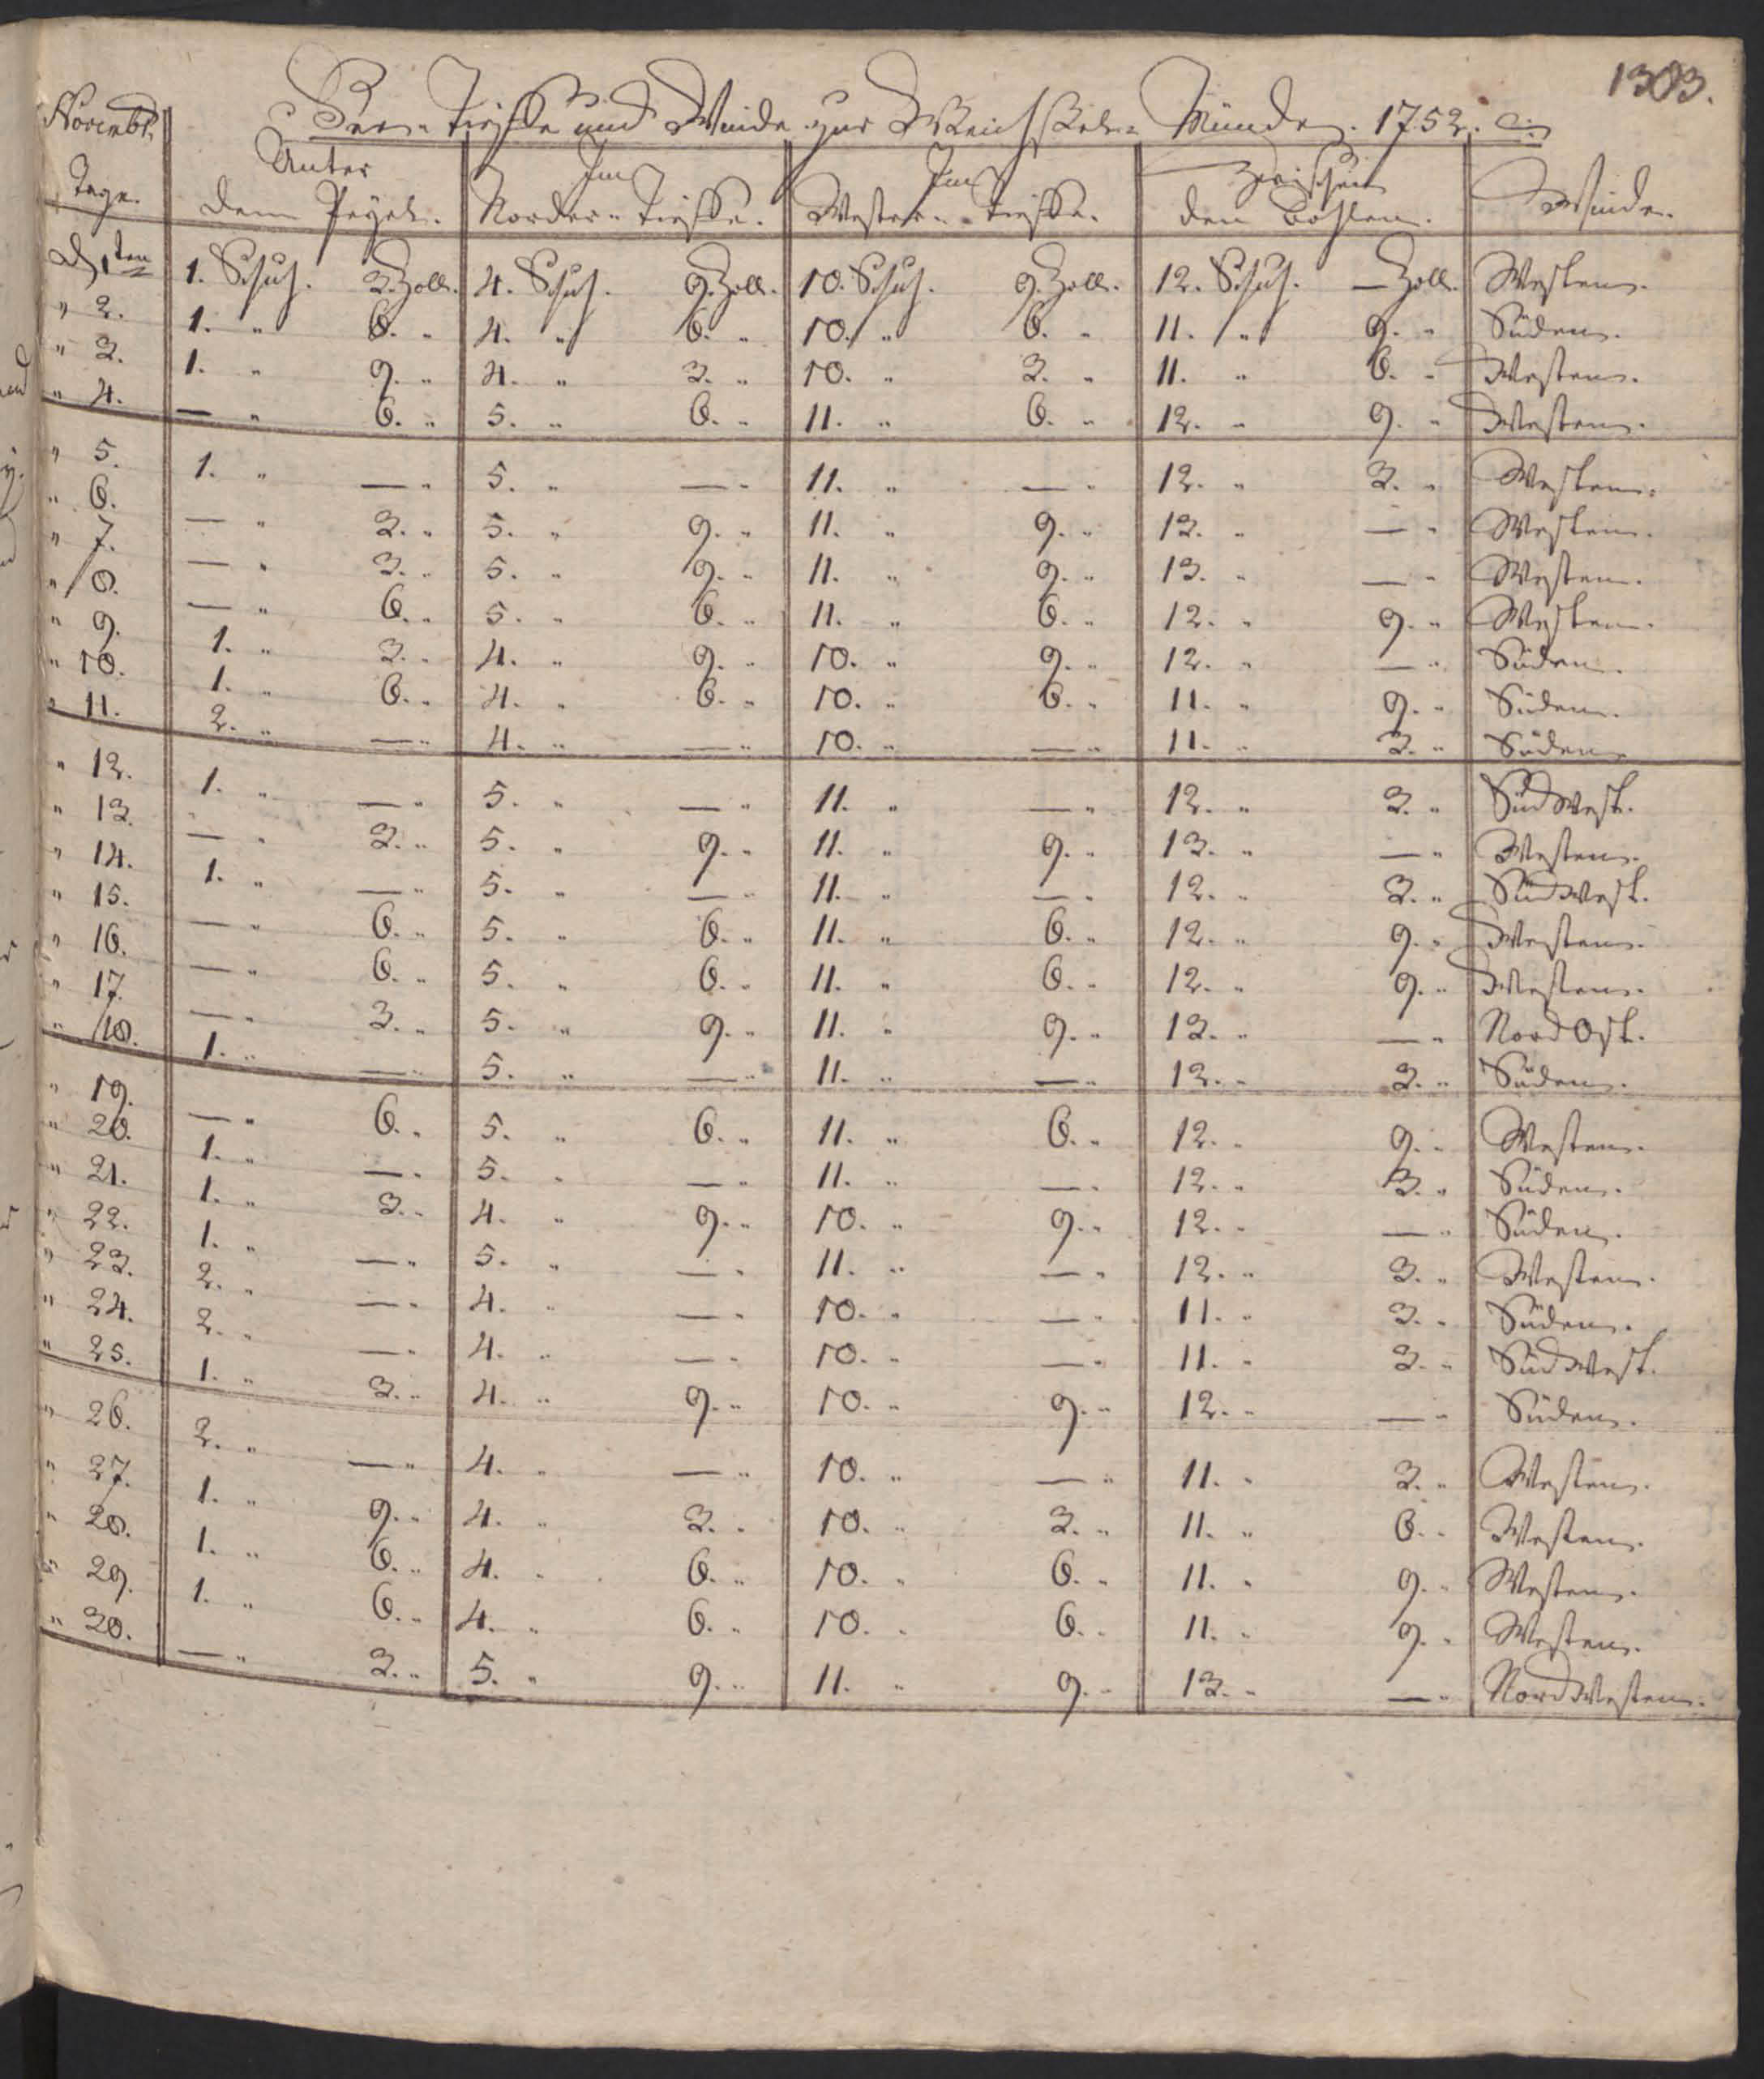 1303.
Novembr. See-Tieffe und Winde zur Weichsel-Münde. 1752.
Tage. Unter dem Pegel. Im Norder-Tieffe. Im Wester-Tieffe. Zwischen den Bohlen. Winde.
D 1ten 1. Schuh. 3. Zoll. 4. Schuh. 9. Zoll. 10. Schuh. 9. Zoll. 12. Schuh. — Zoll. Westen.
" 2. 1. " 6. " 4. " 6. " 10. " 6. " 11. " 9. " Süden.
" 3. 1. " 9. " 4. " 3. " 10. " 3. " 11. " 6. " Westen.
" 4. — " 6. " 5. " 6. " 11. " 6. " 12. " 9. " Westen.
" 5. 1. " — " 5. " — " 11. " — " 12. " 3. " Westen.
" 6. — " 3. " 5. " 9. " 11. " 9. " 13. " — " Westen.
" 7. — " 3. " 5. " 9. " 11. " 9. " 13. " — " Westen.
" 8. — " 6. " 5. " 6. " 11. " 6. " 12. " 9. " Westen.
" 9. 1. " 3. " 4. " 9. " 10. " 9. " 12. " — " Süden.
" 10. 1. " 6. " 4. " 6. " 10. " 6. " 11. " 9. " Süden.
" 11. 2. " — " 4. " — " 10. " — " 11. " 3. " Süden.
" 12. 1. " — " 5. " — " 11. " — " 12. " 3. " SüdWest.
" 13. — " 3. " 5. " 9. " 11. " 9. " 13. " — " Westen.
" 14. 1. " — " 5. " — " 11. " — " 12. " 3. " SüdWest.
" 15. — " 6. " 5. " 6. " 11. " 6. " 12. " 9. " Westen.
" 16. — " 6. " 5. " 6. " 11. " 6. " 12. " 9. " Westen.
" 17. — " 3. " 5. " 9. " 11. " 9. " 13. " — " NordOst.
" 18. 1. " — " 5. " — " 11. " — " 12. " 3. " Süden.
" 19. — " 6. " 5. " 6. " 11. " 6. " 12. " 9. " Westen.
" 20. 1. " — " 5. " — " 11. " — " 12. " 3. " Süden.
" 21. 1. " 3. " 4. " 9. " 10. " 9. " 12. " — " Süden.
" 22. 1. " — " 5. " — " 11. " — " 12. " 3. " Westen.
" 23. 2. " — " 4. " — " 10. " — " 11. " 3. " Süden.
" 24. 2. " — " 4. " — " 10. " — " 11. " 3. " SüdWest.
" 25. 1. " 3. " 4. " 9. " 10. " 9. " 12. " — " Süden.
" 26. 2. " — " 4. " — " 10. " — " 11. " 3. " Westen.
" 27. 1. " 9. " 4. " 3. " 10. " 3. " 11. " 6. " Westen.
" 28. 1. " 6. " 4. " 6. " 10. " 6. " 11. " 9. " Westen.
" 29. 1. " 6. " 4. " 6. " 10. " 6. " 11. " 9. " Westen.
" 30. — " 3. " 5. " 9. " 11. " 9. " 13. " — " NordWesten.